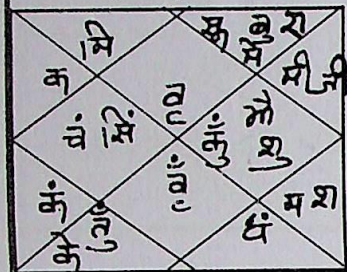 मि सू बु रा
मे
क वृ मी जी
चं सिं कुं मौ
शु
वृं
कं तुं धं म श
के